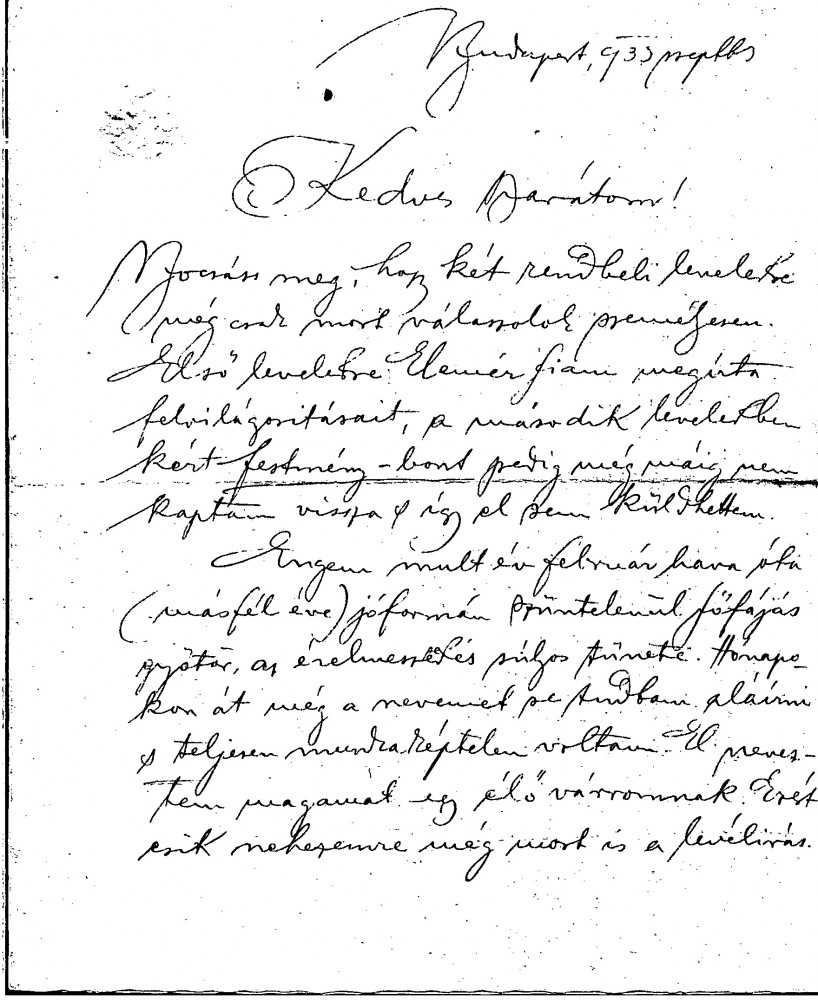 Budapest, 933 szept
Kedves Barátom!
Bocsáss meg, hogy két rendbeli leveledre
még csak most válaszolok személyesen.
Első leveledre Elemér fiam megírta
felvilágosításait, a második leveledben
kért festmény-bont pedig még máig nem
kaptam vissza s így el sem küldhettem.
Engem mult év február hava óta
(másfél éve) jóformán szüntelenül főfájás
gyötör, az érelmeszedés súlyos tünete. Hónapo-
kon át még a nevemet se tudtam aláírni
s teljesen munkaképtelen voltam. El nevez-
tem magamat egy élő várromnak. Ezért
esik nehezemre még most is a levélirás.